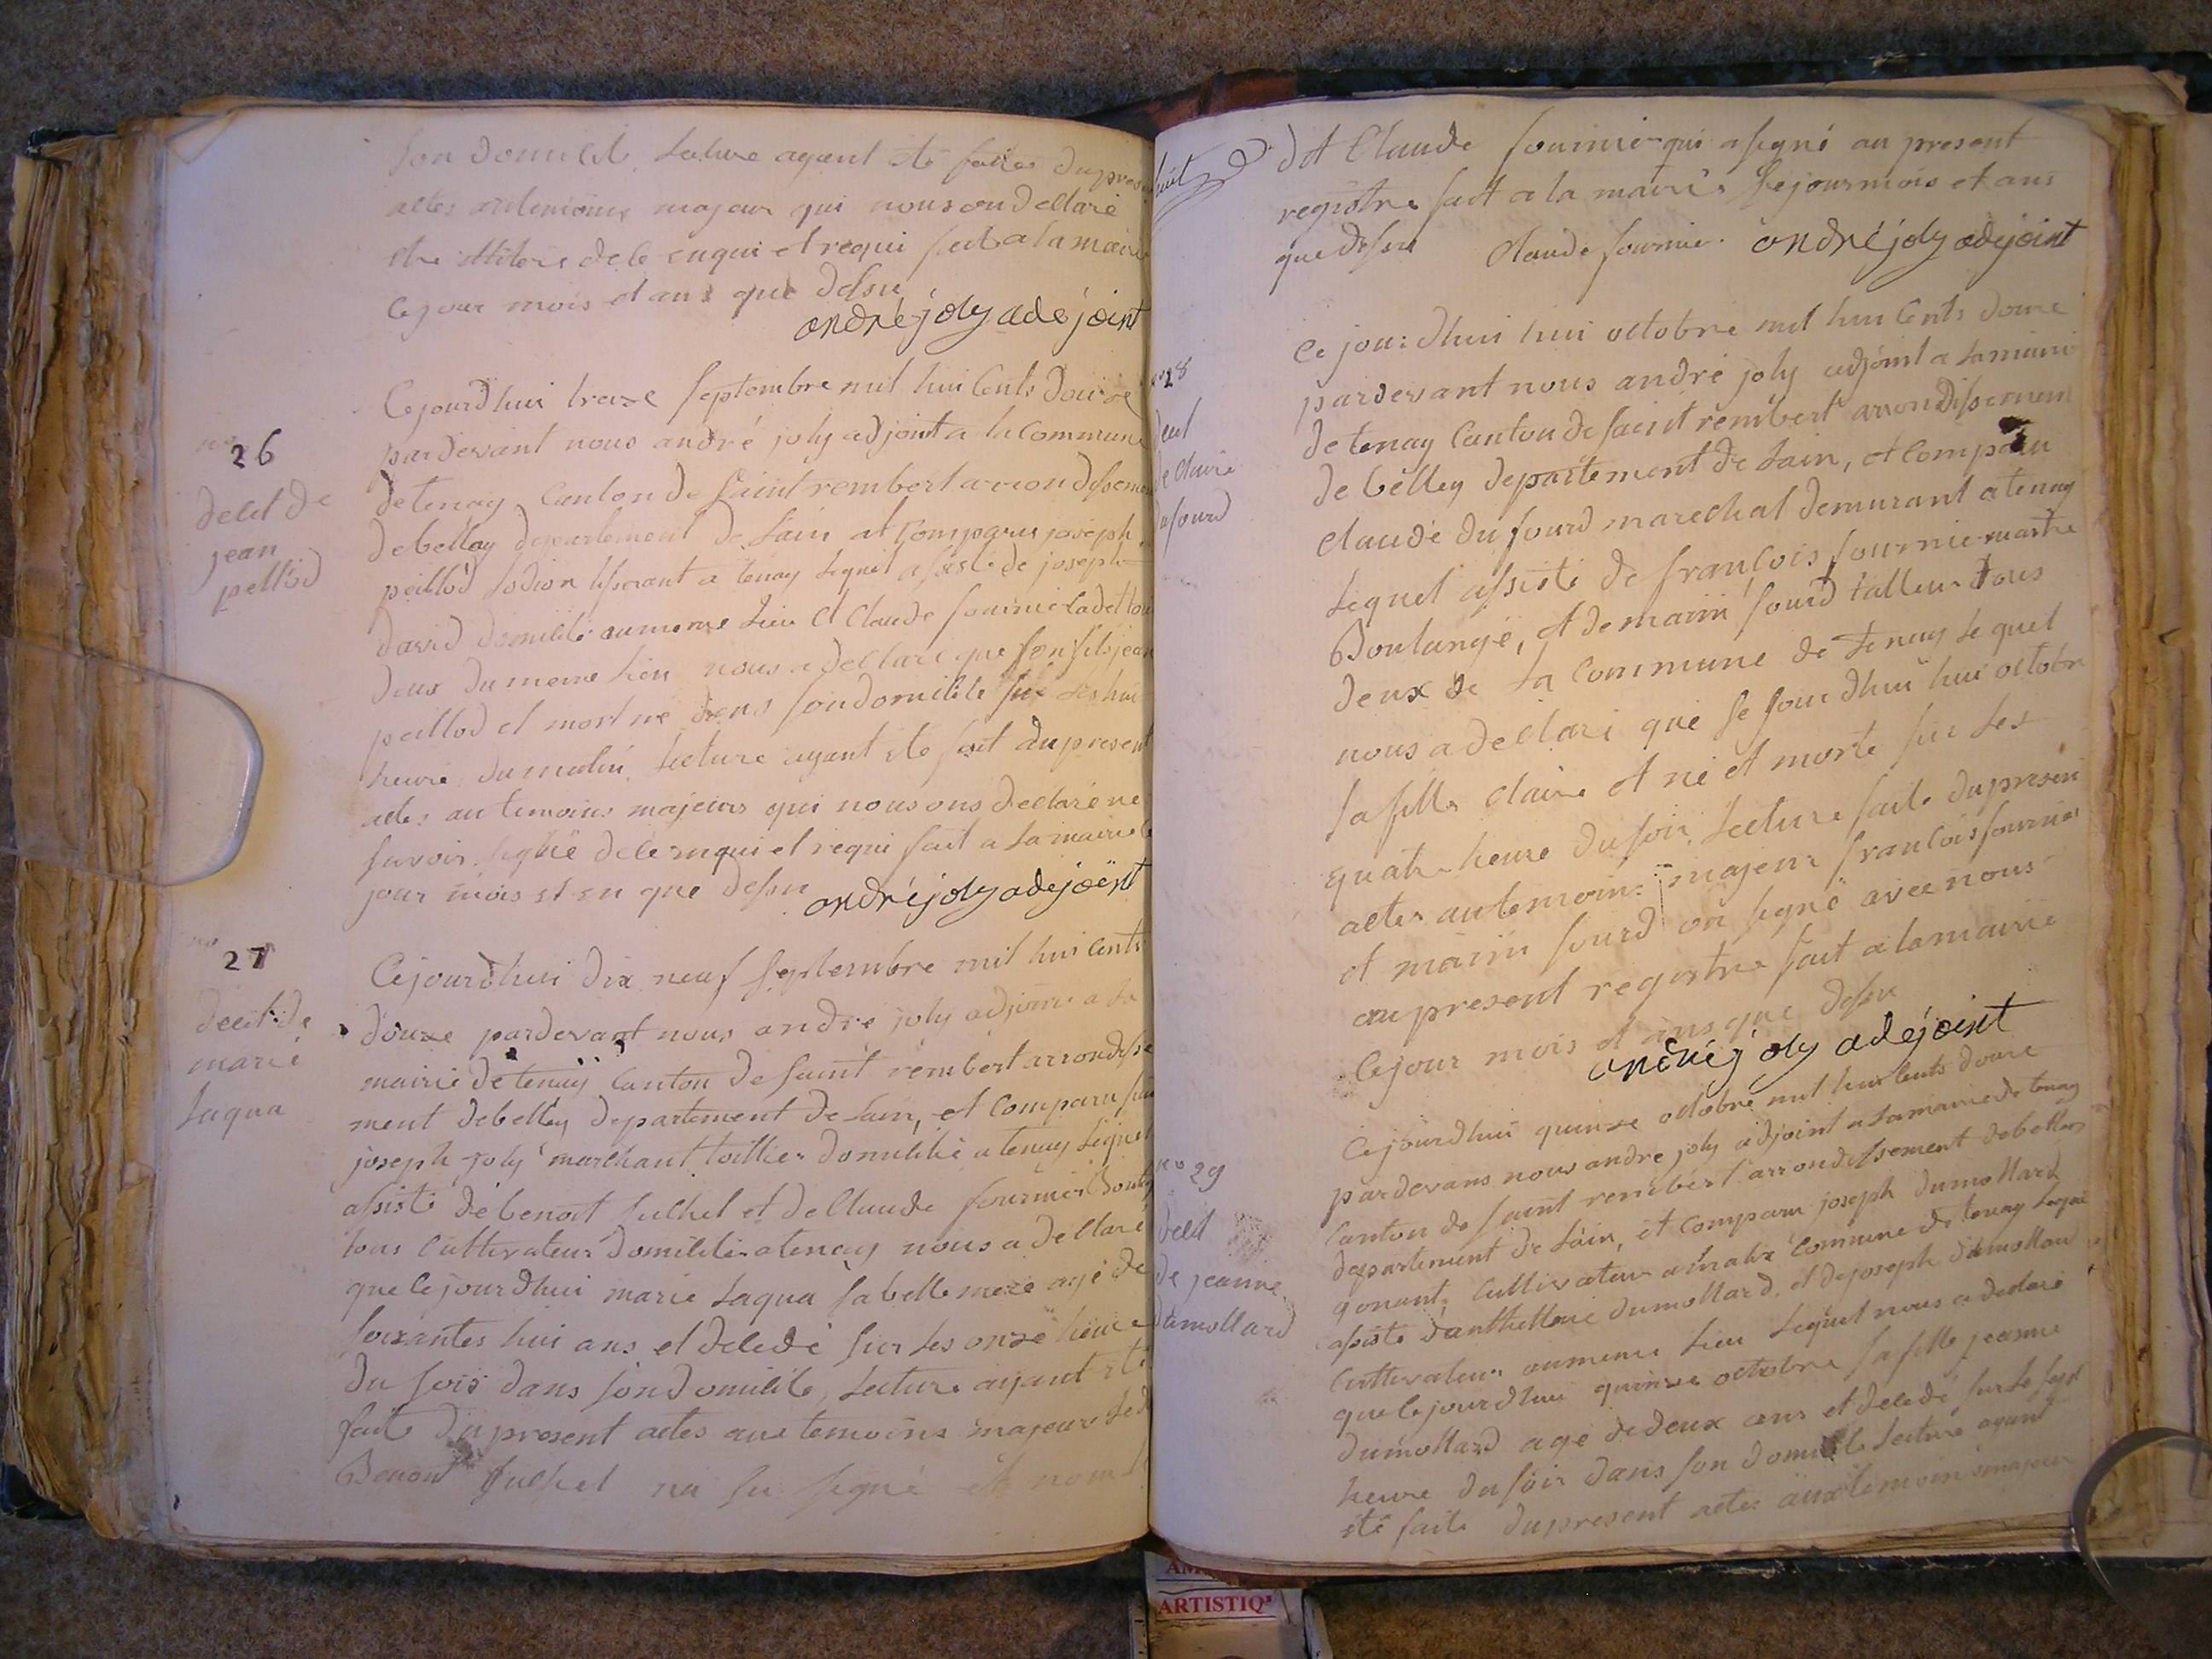 son domicile lecture ayant ete faites du present
actes au temoins majeur qui nous on declaré
etre de ce enquis et requi fait a la mairie
ce jour mois et ans que dessu
andré joly adejoint
no 26
decet de
jean
peillod
Cejourdhui treize septembre mil hui cents douze
pardevant nous andré joly adjoint a la Commune
de tenay Canton de Saint rembert arrondissement
debelley departement de Lain et comparu joseph
peillod a tenay lequel assiste de joseph
david domicilié au meme lieu et Claude fournie cadet tou
deux du meme lieu nous a declare que son fils jean
peillod et mort né dens son domicile sur les hui
heure du matin lecture ayant ete fait du present
actes au temoins majeurs qui nous ons declaré ne
savoir signé de ce enqui et requi fait a la mairie le
jour mois et en que dessu andré joly adejoënt
no 27
decet de
marie
Laqua
Cejourdhui dix neuf septembre mil hui cents
douze pardevant nous andre joly adjoint a la
mairie de tenay Canton de Saint rembert arrondisse
ment debelley departement de Lain, et comparu
joseph joly marchant domicilié a tenay Lequel
assisté de benoit et de Claude fournier
tous cultivateur domicilié a tenay nous a declaré
que le jourdhui marie Laqua sa belle mere agé de
soixantes hui ans et decedé sur les onze heure
du soir dans son domicile, Lecture ayant eté
faite du present actes aux temoins majeur
Benoit na su signé et nom
dit Claude fournier qui a signé au present
registre fait a la mairie le jour mois et ans
que dessu Claude fournier andré joly adejoint
no 28
decet
de claire
dufourd
Ce jourdhui hui octobre mil hui Cents douze
pardevant nous andré joly adjoint a La mairie
de tenay Canton de Saint rembert arrondissement
de belley departement de Lain, et comparu
Claude dufourd marechal demurant a tenay
Lequel assisté de francois fournie maitre
Boulangé, et de marin fourd talleur tous
deux de La Commune de tenay Lequel
nous a declaré que le jourdhui hui octobre
sa fille Claire et né et morte sur Les
quatre heure du soir, Lecture faite du present
actes au temoins majeur francois fournier
et marin fourd on signé avec nous
au present registre fait a la mairie
Ce jour mois et ans que dessu
andré joly adejoint
no 29
decet
de jeanne
dumollard
Cejourdhui quinze octobre mil hui cents douze
pardevans nous andre joly adjoint a La mairie de tenay
Canton de Saint rembert arrondissement debelley
departement de Lain, et comparu joseph dumollard
gonant, Cultivateur a commune de tenay Lequel
assisté dumollard, et de joseph dumollard
Cultivateur au meme Lieu Lequel nous a declaré
que Le jourdhui quinze octobre sa fille jeanne
dumollard age de deux ans et decedé sur Le sept
heure du soir dans son domicile Lecture ayant
eté faite du present actes aux temoins majeur
ARTISTIQ